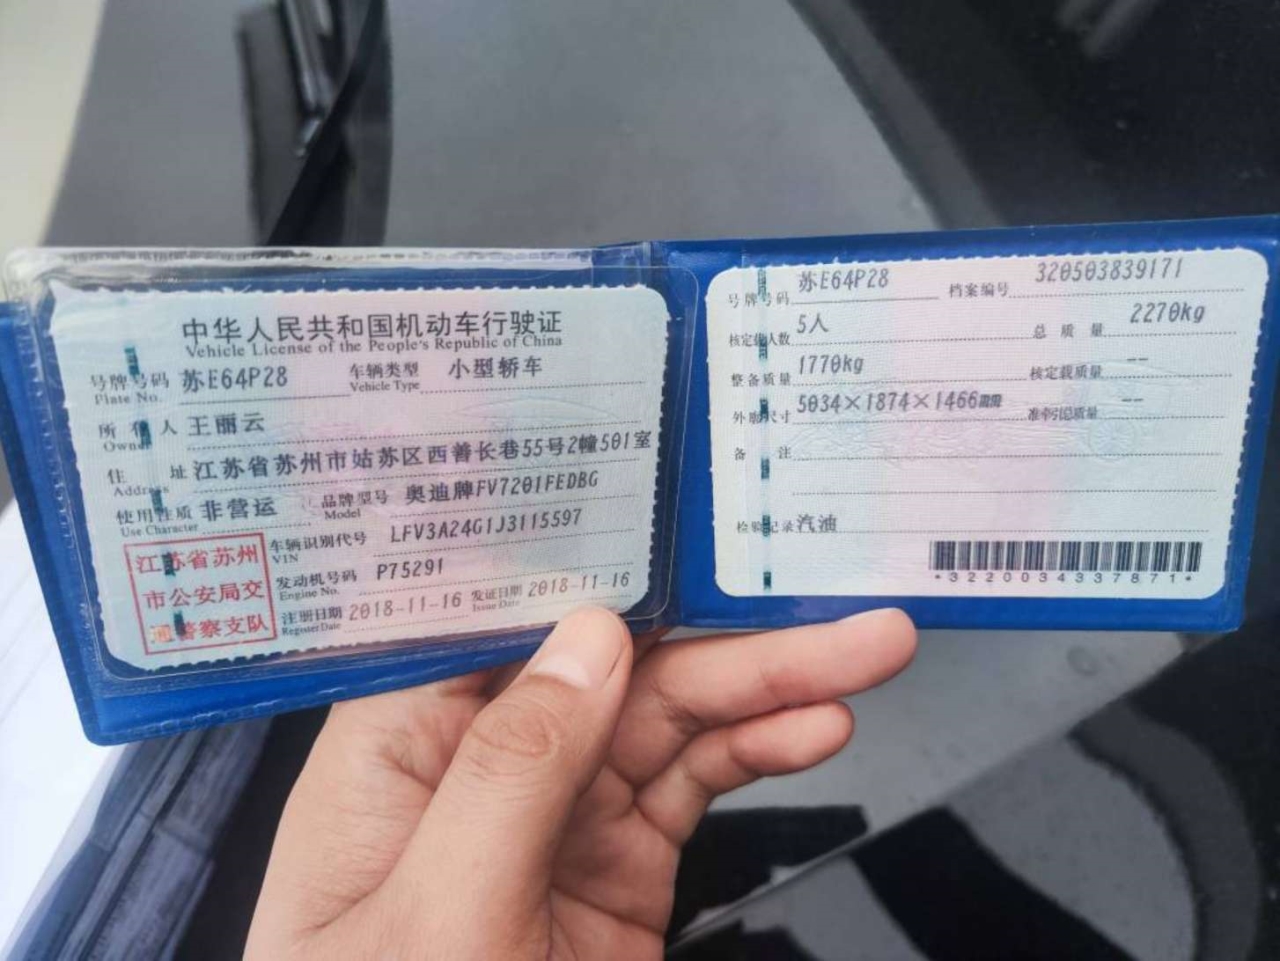 中华人民共和国机动车行驶证
Vehicle License of the People's Republic of China
号牌号码 苏E64P28 车辆类型 小型轿车
Plate No. Vehicle Type
所有人 王丽云
Owner
住址 江苏省苏州市姑苏区西善长巷55号2幢501室
Address
使用性质 非营运 品牌型号 奥迪牌FV7201FEDBG
Use Character Model
江苏省苏州
市公安局交
通警察支队
车辆识别代号 LFV3A24G1J3115597
VIN
发动机号码 P75291
Engine No.
注册日期 2018-11-16 发证日期 2018-11-16
Register Date Issue Date
号牌号码 苏E64P28 档案编号 320503839171
核定载人数 5人 总质量 2270kg
整备质量 1770kg 核定载质量 --
外廓尺寸 5034×1874×1466mm 准牵引总质量 --
备注
检验记录 汽油
*3220034337871*